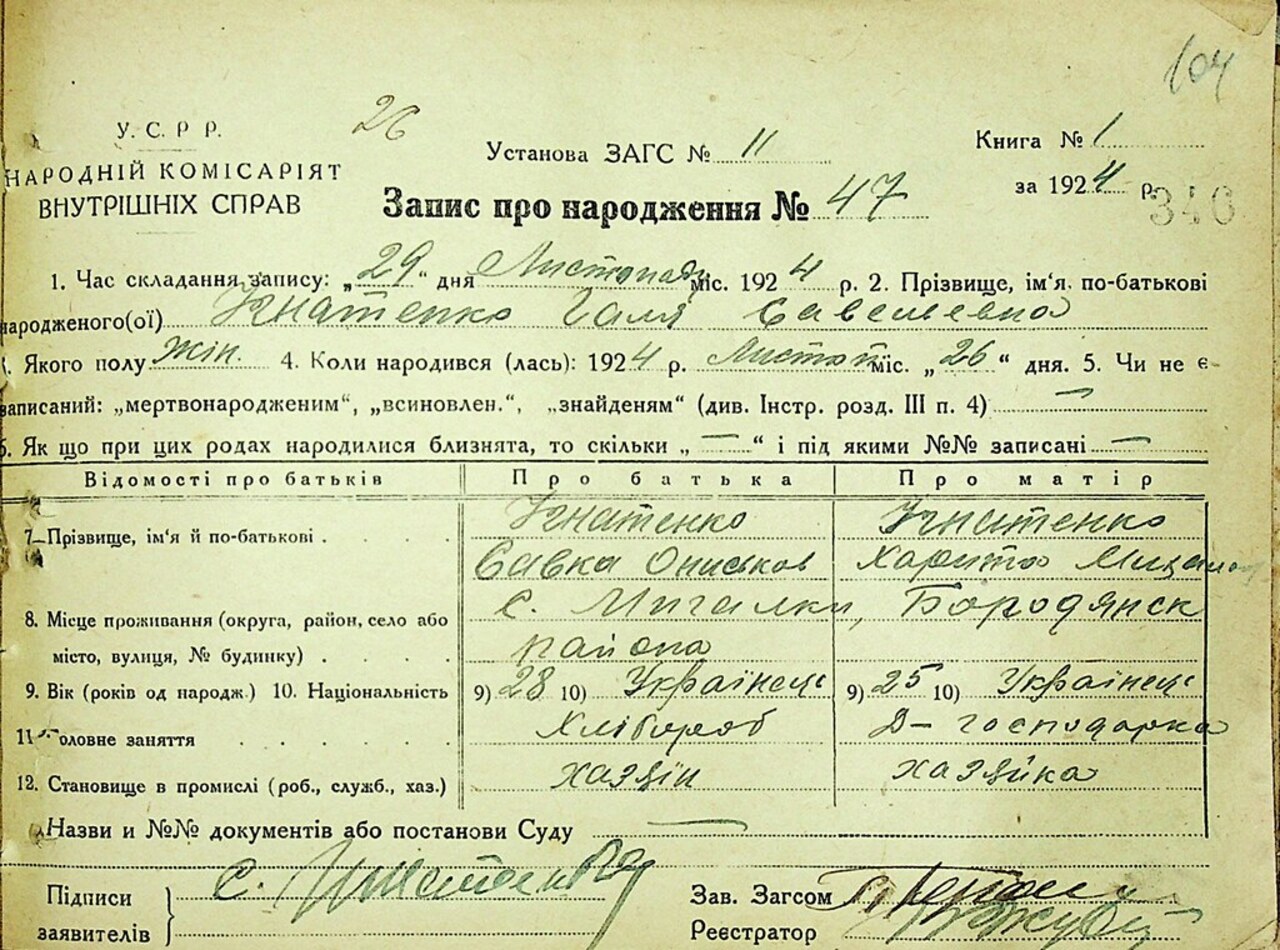 104
У. С. Р Р.
26
Установа ЗАГС № 11
Книга № 1
НАРОДНІЙ КОМІСАРІЯТ
за 1924 р.
ВНУТРІШНІХ СПРАВ
Запис про народження № 47
346
1. Час складання запису: „29“ дня Листопаду міс. 1924 р. 2. Прізвище, ім'я по-батькові
народженого(ої) Ігнатенко Галя Савелевна
Якого полу жін. 4. Коли народився (лась): 1924 р. Листоп міс. „26“ дня. 5. Чи не є
записаний: „мертвонародженим“, „всиновлен.“, „знайденям“ (див. Інстр. розд. III п. 4) —
6. Як що при цих родах народилися близнята, то скільки „—“ і під якими №№ записані —
Відомості про батьків Про батька Про матір
7. Прізвище, ім'я й по-батькові . . . . Ігнатенко Ігнатенко
Савка Ониськов Харита
8. Місце проживання (округа, район, село або с. Мигалки, Бородянск
місто, вулиця, № будинку) . . . . района
9. Вік (років од народж.) 10. Національність 9) 28 10) Українець 9) 25 10) Українець
11. Головне заняття . . . . . . Хлібороб Д-господарка
12. Становище в промислі (роб., служб., хаз.) хазяін хазяйка
Назви и №№ документів або постанови Суду —
Підписи
заявителів
С. Ігнатенко
Зав. Загсом
Реєстратор